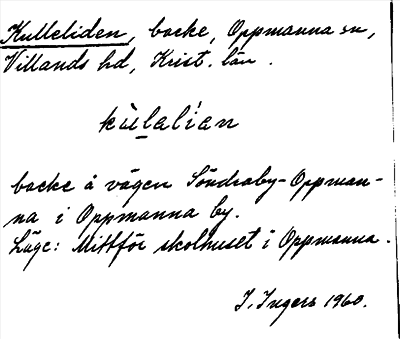 Kulleliden, backe, Oppmanna sn,
Villands hd, Krist. län.
kùlalían
backe å vägen Söndraby-Oppman-
na i Oppmanna by.
Läge: Mittför skolhuset i Oppmanna.
I. Ingers 1960.